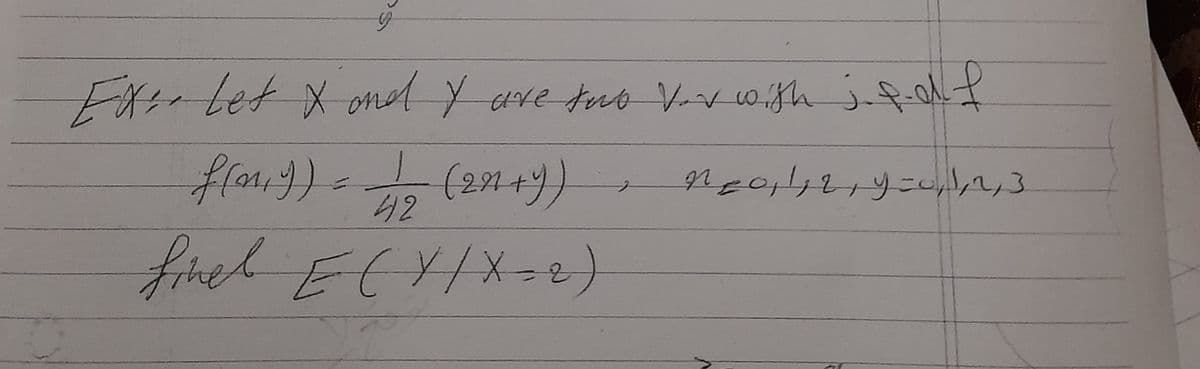 Ex:- Let X and Y are two r.v with j.p.d.f
f(x,y) = 1/42 (2x+y) , x=0,1,2, y=0,1,2,3
find E(Y/X=2)